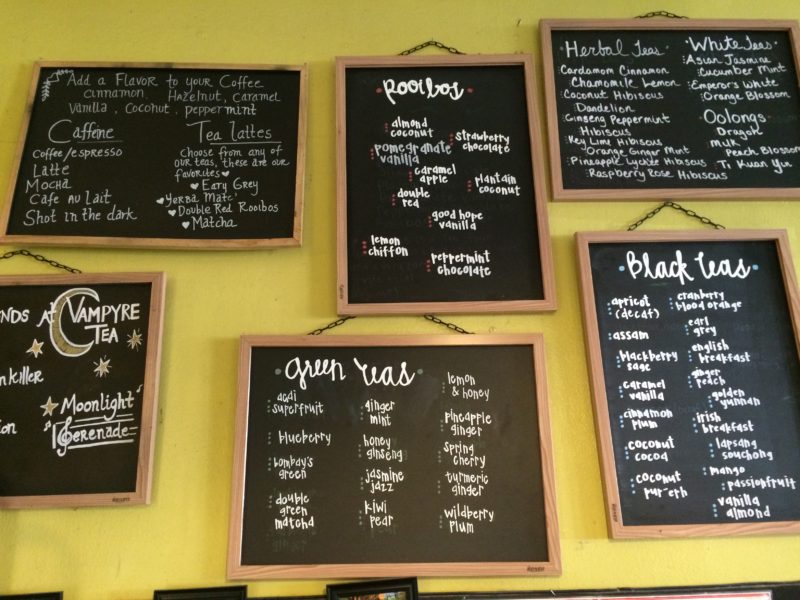 Add a Flavor to your Coffee
cinnamon, Hazelnut, Caramel
Vanilla, Coconut, peppermint
Caffene
Coffee/espresso
Latte
Mocha
Cafe Au lait
Shot in the dark
Tea lattes
Choose from any of
our teas, these are our
favorites
Eary Grey
Yerba Mate'
Double Red Rooibos
Matcha
Rooibos
almond
coconut
strawberry
chocolate
pomegranate
vanilla
caramel
apple
plantain
coconut
double
red
good hope
vanilla
lemon
chiffon
peppermint
chocolate
Herbal Teas
Cardamom Cinnamon
Chamomile Lemon
Coconut Hibiscus
Dandelion
Ginseng Peppermint
Hibiscus
Key Lime Hibiscus
Orange Ginger Mint
Pineapple Lychee Hibiscus
Raspberry Rose Hibiscus
White Teas
Asian Jasmine
Cucumber Mint
Emperor's White
Orange Blossom
Oolongs
Dragon
Milk
Peach Blossom
Ti Kuan Yin
NDS AT VAMPYRE
TEA
nkiller
Moonlight
Serenade
ion
green teas
acai
superfruit
blueberry
bombay's
green
double
green
matcha
ginger
mint
honey
ginseng
jasmine
jazz
kiwi
pear
lemon
& honey
pineapple
ginger
spring
cherry
turmeric
ginger
wildberry
plum
Black teas
apricot
(decaf)
assam
blackberry
sage
caramel
vanilla
cinnamon
plum
coconut
cocoa
coconut
pur-erh
cranberry
blood orange
earl
grey
english
breakfast
ginger
peach
golden
yunnan
irish
breakfast
lapsang
souchong
mango
passionfruit
vanilla
almond